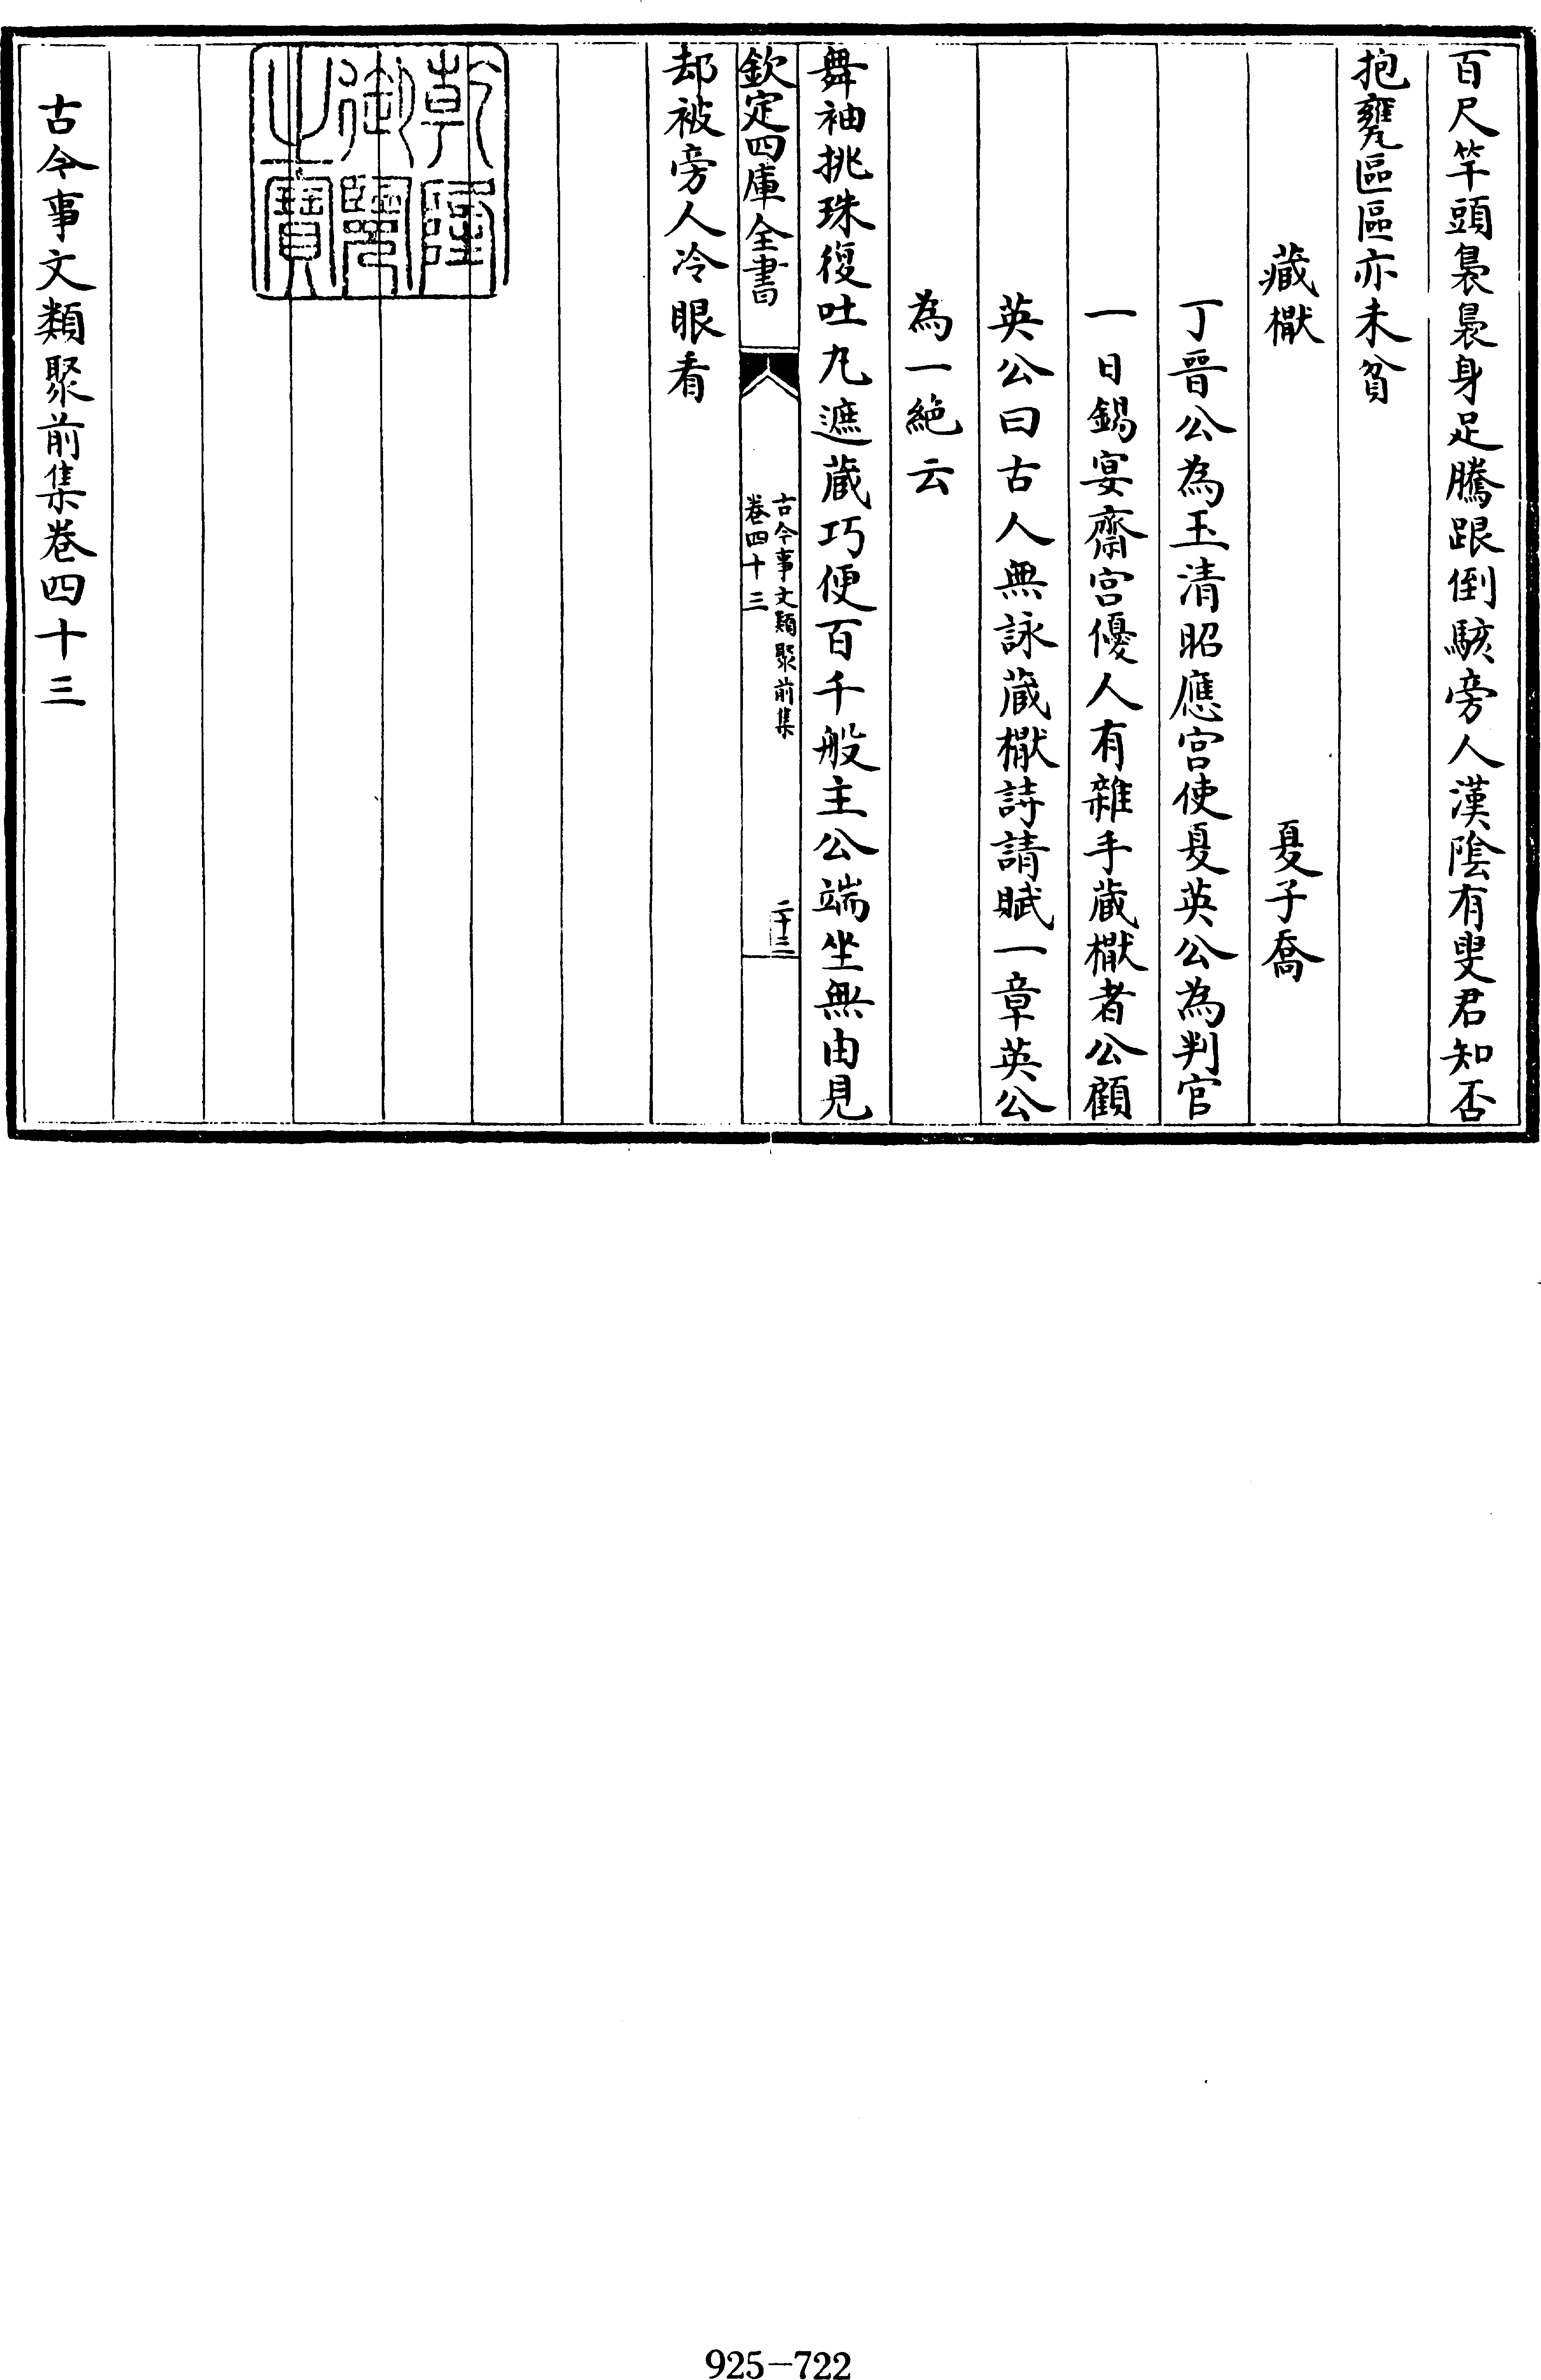 百尺竿頭裊裊身足騰跟倒駭旁人漢陰有叟君知否
抱甕區區亦未貧
藏橛 夏子喬
丁晉公為玉清昭應宮使夏英公為判官
一日錫宴齋宮優人有雜手藏橛者公顧
英公曰古人無詠藏橛詩請賦一章英公
為一絕云
舞袖挑珠復吐丸遮藏巧便百千般主公端坐無由見
欽定四庫全書
古今事文類聚前集
卷四十三
二十三
却被旁人冷眼看
乾隆
御覽
之寶
古今事文類聚前集卷四十三
925-722